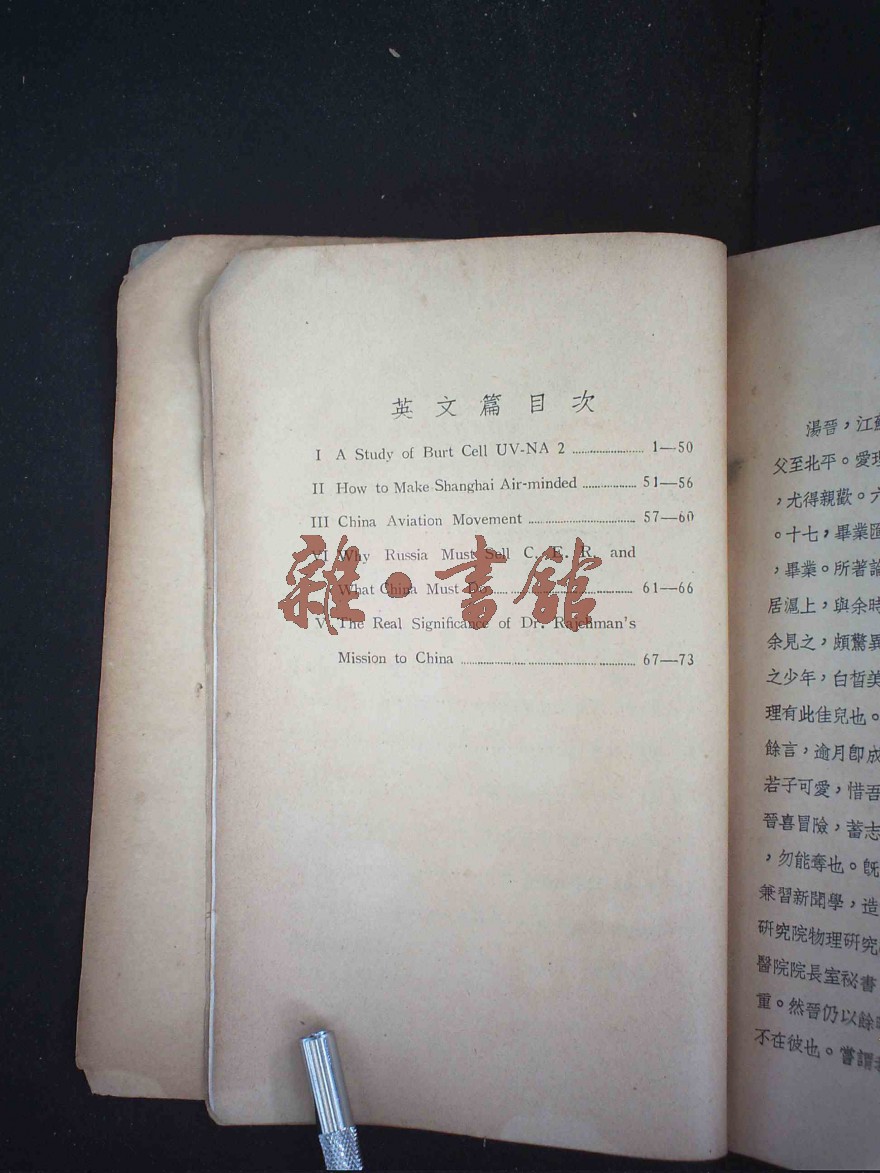 英文篇目次
I A Study of Burt Cell UV-NA 2 ........................ 1—50
II How to Make Shanghai Air-minded .................. 51—56
III China Aviation Movement .................................... 57—60
VI Why Russia Must Sell C. E. R. and
What China Must Do ................................................ 61—66
V The Real Significance of Dr. Rajchman's
Mission to China ........................................................... 67—73
雜·書館
湯晉，江蘇
父至北平。愛理
，尤得親歡。六
。十七，畢業匯
，畢業。所著論
居滬上，與余時
余見之，頗驚異
之少年，白皙美
理有此佳兒也。
餘言，逾月卽成
若子可愛，惜吾
晉喜冒險，蓄志
，勿能奪也。旣
兼習新聞學，造
硏究院物理硏究
醫院院長室祕書
重。然晉仍以餘
不在彼也。嘗謂